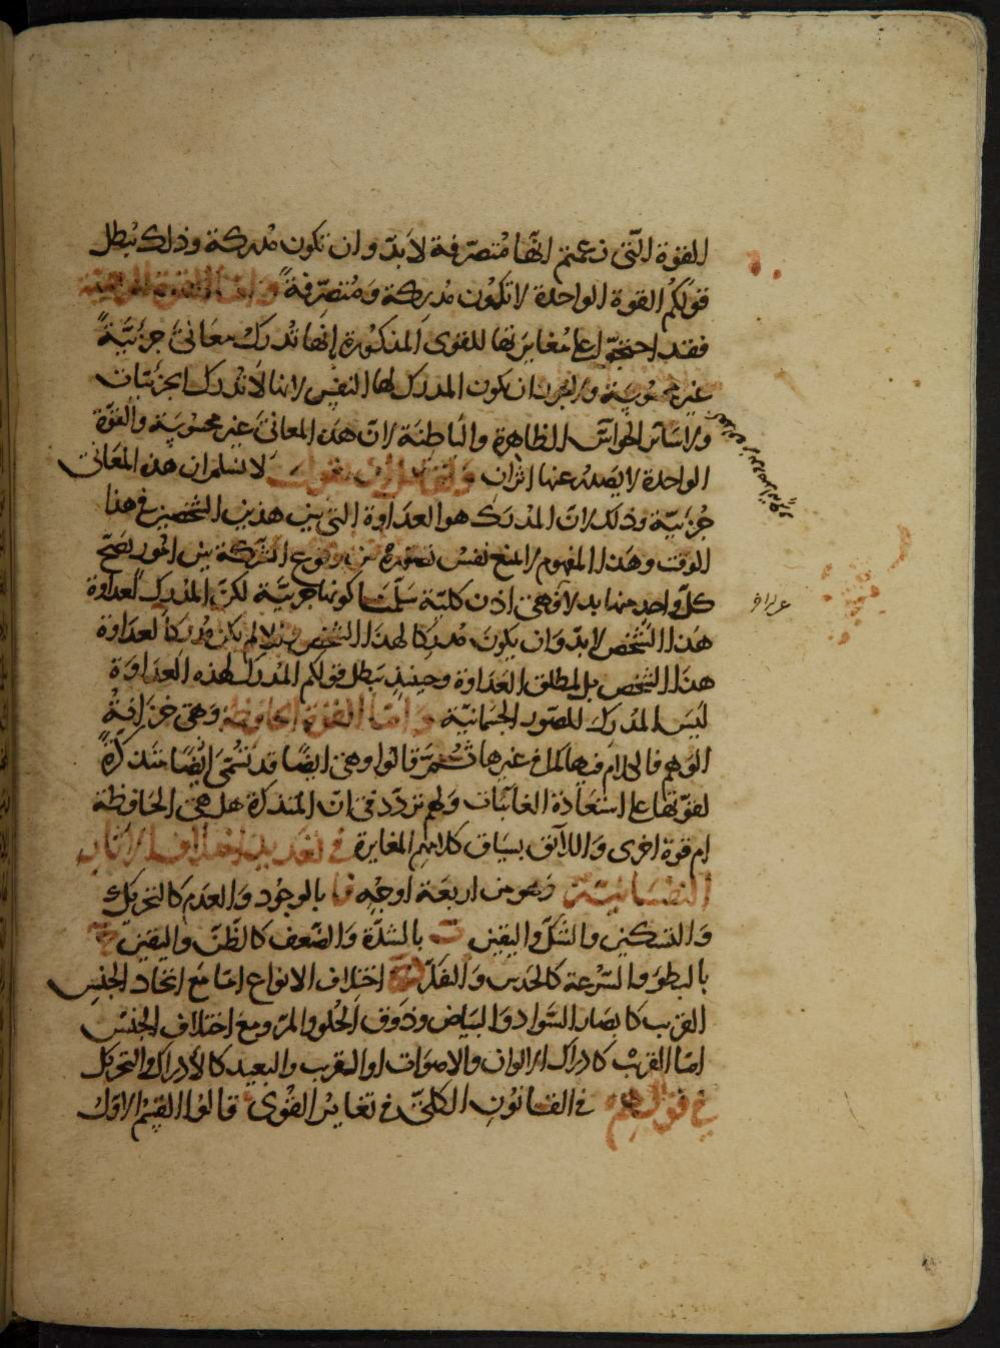 القوة التى زعمتم انها متصرفة لابد وان تكون مدركة وذلك يبطل
قولكم القوة الواحدة لا تكون مدركة ومتصرفة واما القوة الوهمية
فقد احتجوا على مغايرتها للقوى المذكورة انها تدرك معانى جزئية
غير محسوسة ولا يجوز ان يكون المدرك لها النفس لانها لا تدرك الجزئيات
ولا سائر الحواس الظاهرة والباطنة لان هذه المعانى غير محسوسة والقوة
الواحدة لا يصدر عنها اثران ولقائل ان يقول لا نسلم ان هذه المعانى
جزئية وذلك لان المدرك هو العداوة التى بين هذين الشخصين فى هذا
الوقت وهذا المفهوم لا يمنع نفس تصوره من وقوع الشركة بين امور يصح
كل واحد منها بدلا فهى اذن كلية سلمنا كونها جزئية لكن المدرك لعداوة
هذا الشخص لابد وان يكون مدركا لهذا الشخص لم يكن مدركا لعداوة
هذا الشخص بل لمطلق العداوة وحينئذ يبطل قولكم المدرك لهذه العداوة
ليس المدرك للصور الجسمانية واما القوة الحافظة وهى خزانة
الوهم فالكلام فيها كما فى غيرها ثم قالوا وهى ايضا قد تسمى ايضا متذكرة
لقوتها على استعادة الغائبات ولهم تردد فى ان المتذكرة هل هى الحافظة
ام قوة اخرى واللائق بسياق كلامهم المغايرة فى تعديد اختلاف الاثار
النفسانية وهو من اربعة اوجه ا بالوجود والعدم كالتحريك
والتسكين والشك واليقين ب بالشدة والضعف كالظن واليقين ج
بالبطو والسرعة كالحدس والفكر د اختلاف الانواع اما مع اتحاد الجنس
القريب كابصار السواد والبياض وذوق الحلو والمر ومع اختلاف الجنس
اما القريب كادراك الالوان والاصوات او القريب والبعيد كالادراك والتحريك
فى قولهم فى القانون الكلى فى تغاير القوى قالوا القسم الاول